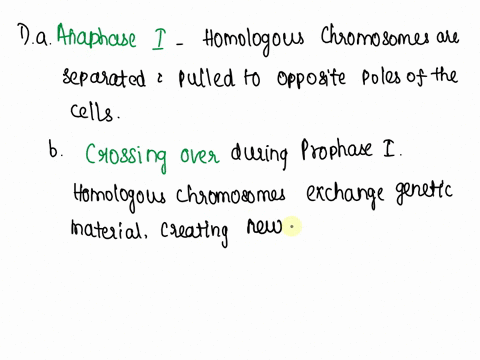 1).a. Anaphase I - Homologous Chromosomes are
separated & pulled to opposite poles of the
cells.
b. Crossing over during Prophase I.
Homologous chromosomes exchange genetic
material, creating new